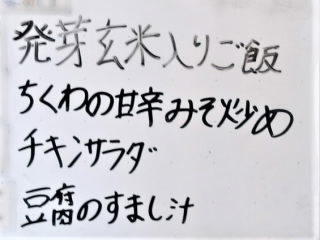 発芽玄米入りご飯
ちくわの甘辛みそ炒め
チキンサラダ
豆腐のすまし汁